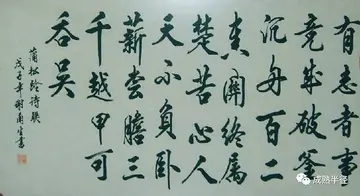 有志者事
竟成破釜
沉舟百二
秦關終属
楚苦心人
天不負卧
薪尝膽三
千越甲可
吞吴
蒲松龄诗联
戊子年书
成熟半径